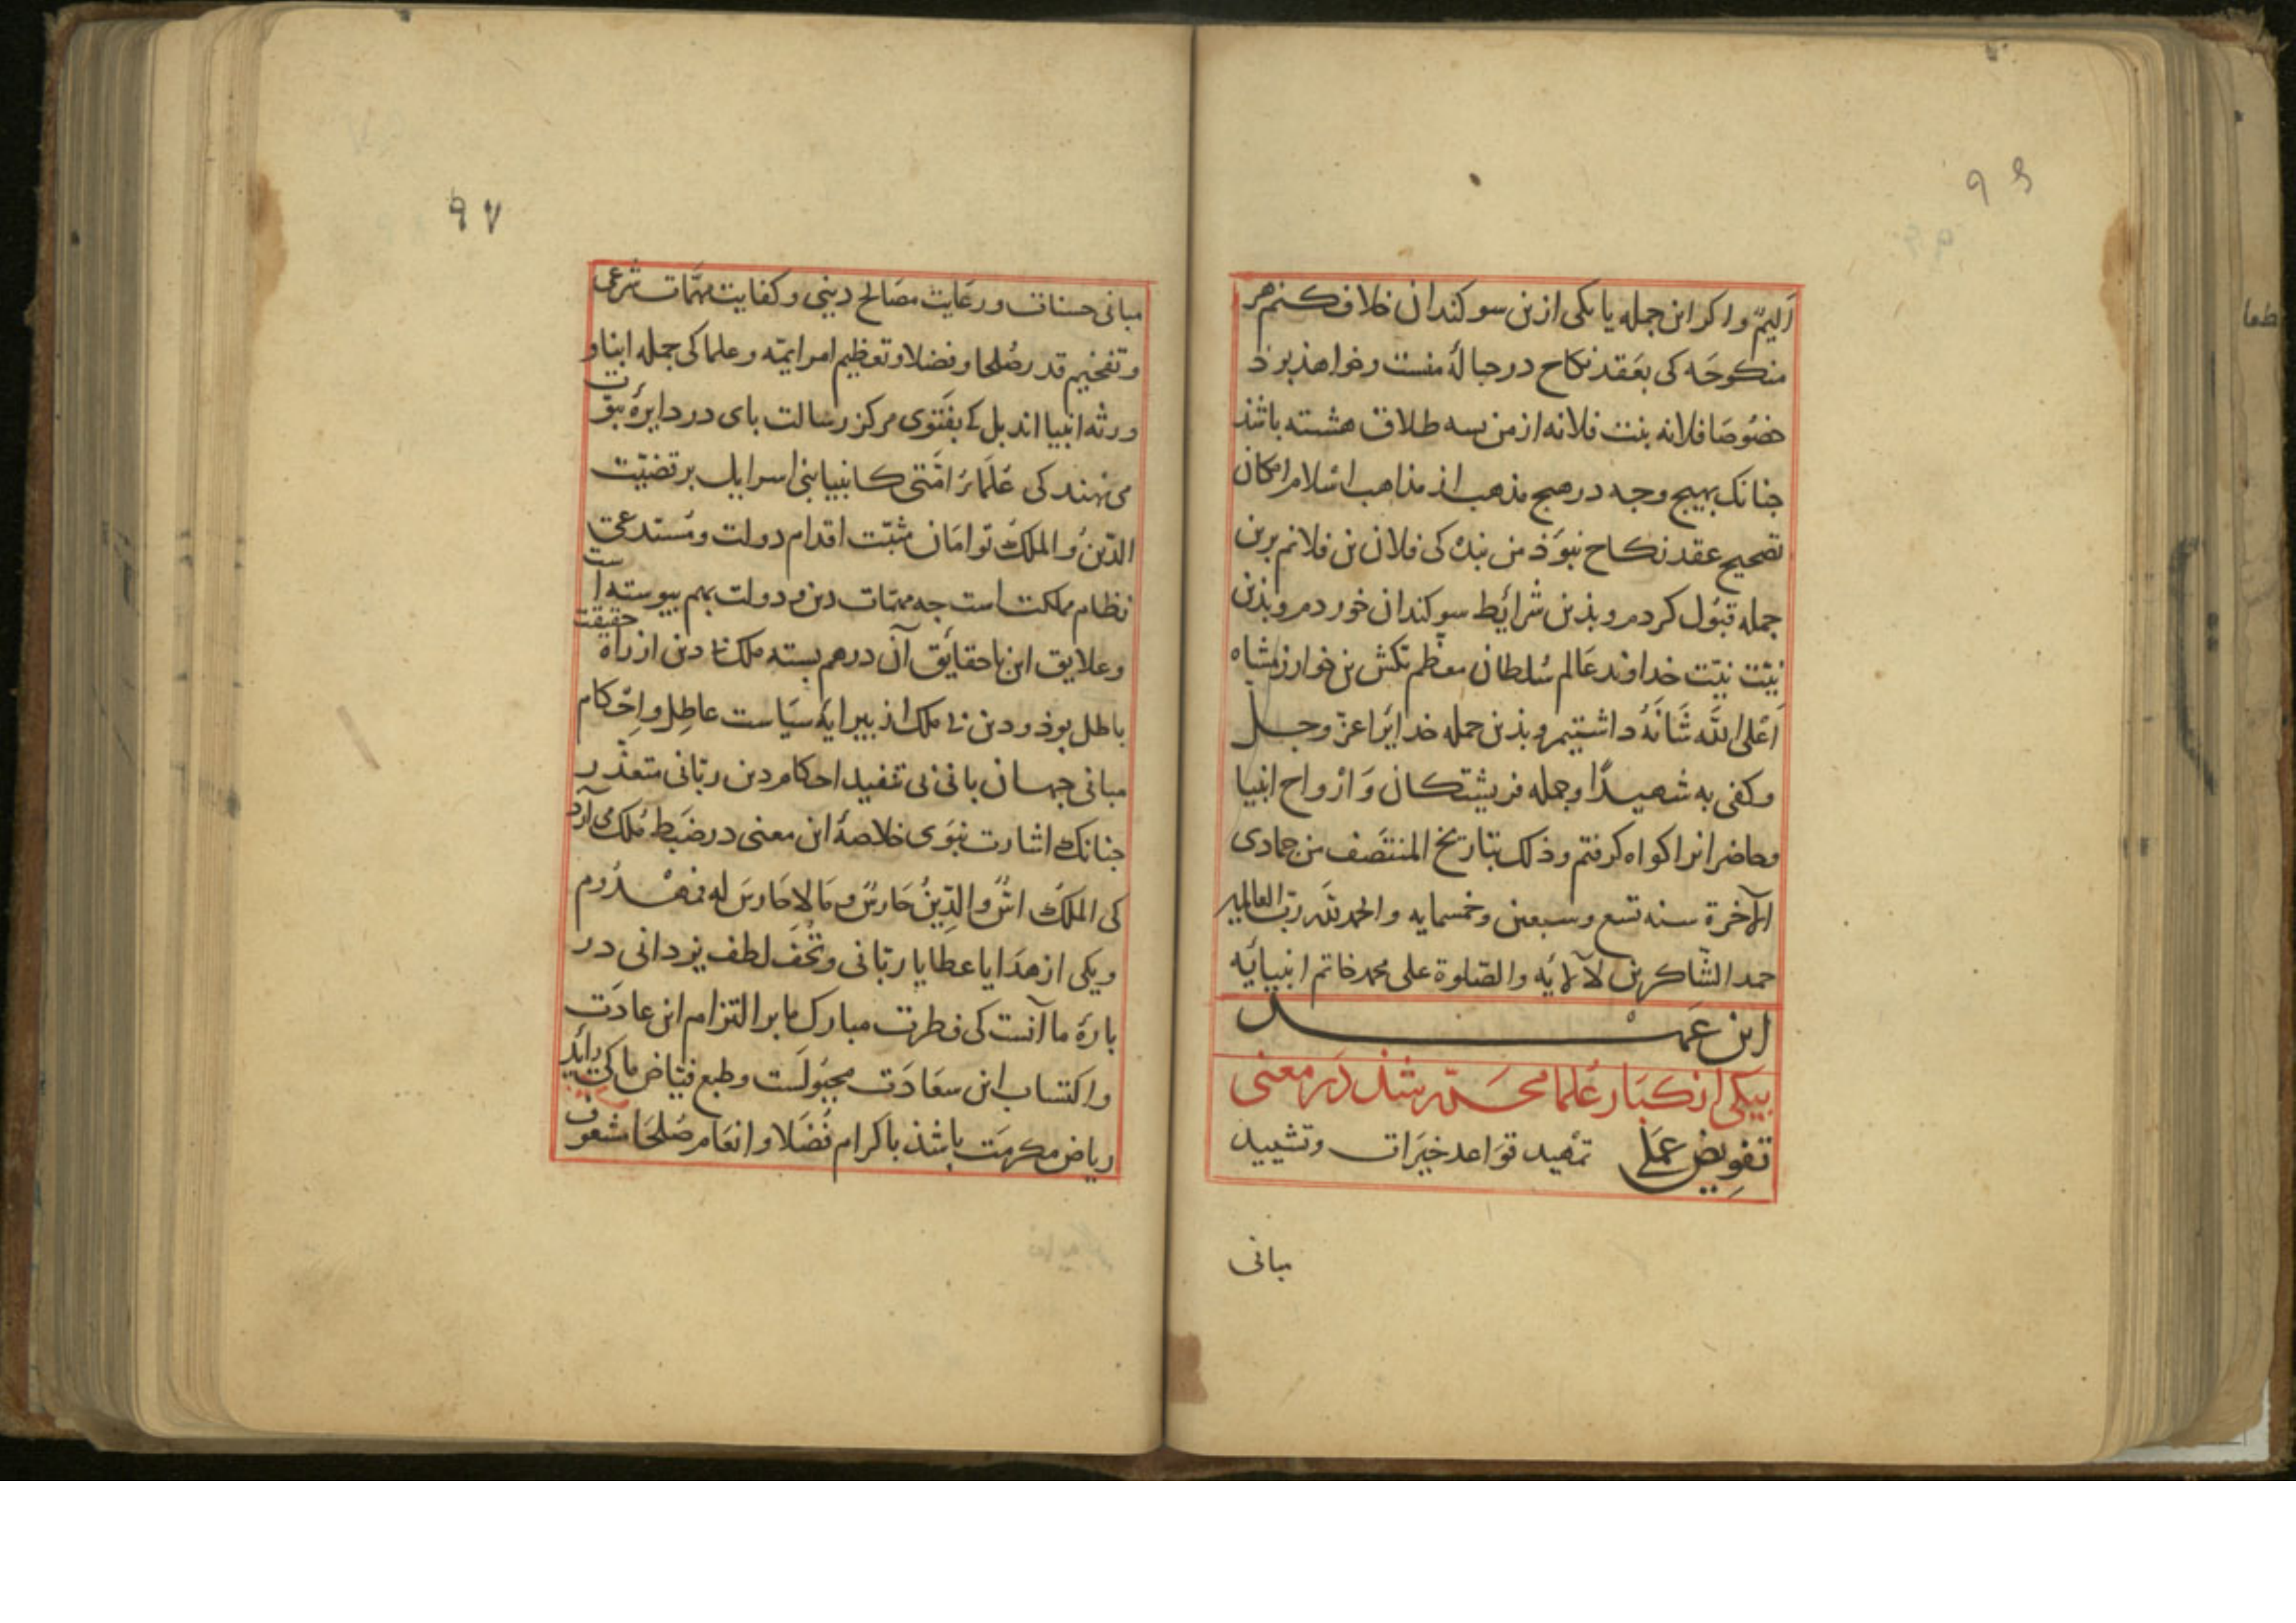 ۹۶
اَلیمٌ واکر این جمله یا یکی ازین سوکندان خلاف کنم هر
منکوحَه کی بعَقد نکاح در حبالۀ منست و خواهذ بوذ
خصُوصًا فلانه بنت فلانه از من بسه طلاق هشته باشذ
جنانک بهیچ وجه در هیچ مذهب از مذاهب اسلام امکان
تصحیح عقد نکاح نبوَذ من بنده کی فلان بن فلانم برین
جمله قبُول کردم و بذین شرائط سوکندان خوردم و بذین
نیّت نیّت خداوند عَالم سُلطان معظم تکش بن خوارزمشاه
اَعْلی الله شَانَهُ داشتیم و بذین جمله خدایرا عزّ وجل
وکفی به شهیدًا وجمله فریشتکان وَ ارْواح انبیا
وحاضرانرا کواه کرفتم وذلک بتاریخ المنتصَف من جمادی
الآخرة سنه تسع وسبعین وخمسمایه والحمد لله ربّ العالمین
حمد الشّاکرین لآلایَه والصّلوة علی محمد خاتم انبیایَه
این عَهد
بیکی از کبَار عُلما محرّر شذ دَر معنی
تفویض عَمَل تمهید قوَاعد خیَرات وتشیید
مبانی
۹۷
مبانی حسنات ورعَایت مصَالح دینی وکفایت مهمّات شرعی
وتفخیم قدر صُلحا وفضلا وتعظیم امر ایمّه وعلما کی جمله ابنا و
ورثه انبیا اند بل کی بفَتوَی مرکز رسَالت بای در دایرۀ نبوّت
می نهند کی عُلَمَاءُ امّتی کانبیا بنی اسرایل بر قضیّت
الدّینُ والملکُ توامَان مثبّت اقدام دولت ومُستدعی
نظام مملکت است جه مهمّات دین و دولت بهم بیوسته است
وعلایق این با حقائق آن درهم بسته ملک نا دین از راه حقیقت
باطل بوذ و دین بی ملک از بیرایۀ سیَاست عاطِل واِحْکام
مبانی جهان بانی بی تنفید احکام دین ربّانی متعذّر
جنانک اشارت نبَوی خلاصۀ این معنی در ضَبط مُلک می آرد
کی الملکُ اسٌّ والدّینُ حَارسٌ ومَا لا حَارسَ له فمهْدُوم
ویکی از هدَایا عطایا ربّانی وتُحَف لطف یزدانی در
بارۀ ما آنست کی فطرت مبارک ما بر التزام این عادَت
واکتساب این سعَادَت مجبُولَست وطبع فیّاض ما کی رائد
ریاض مکرمَت باشذ باکرام فُضَلا وانعَام صُلحَا مشعوف